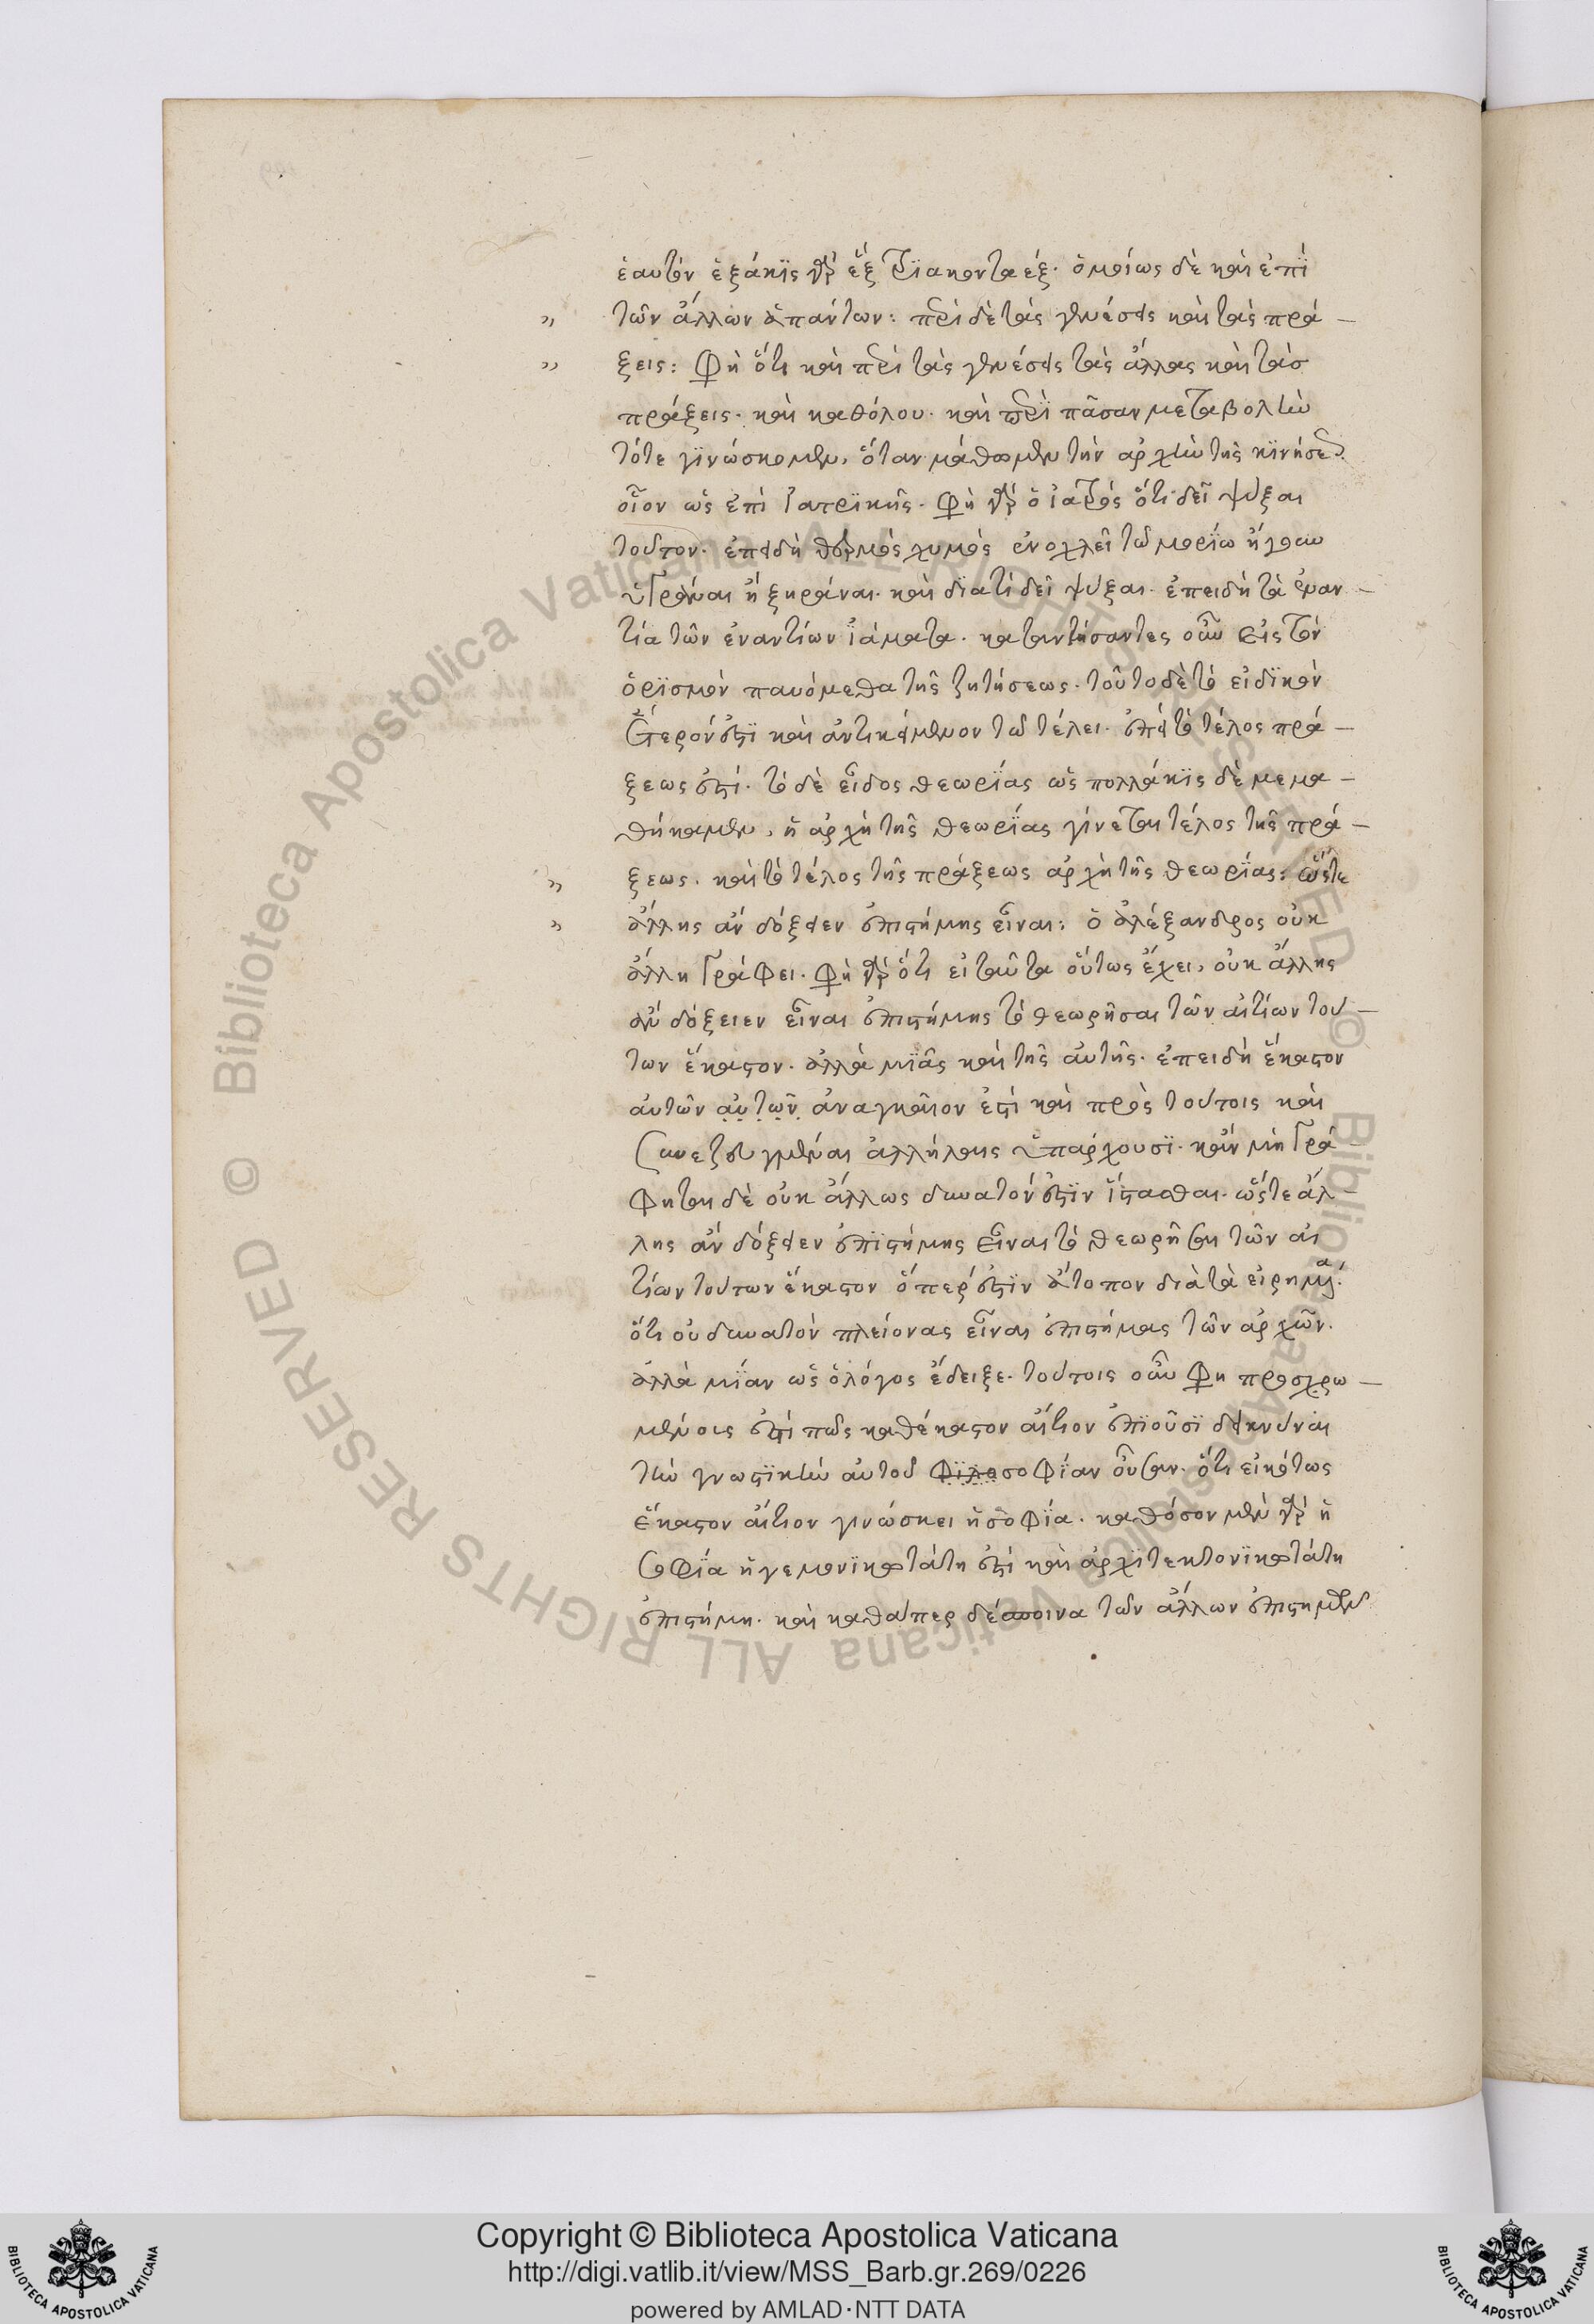 ἑαυτὸν ἑξάκϊς γὰρ ἓξ τρϊακονταέξ· ὁμοίως δὲ καὶ ἐπῒ
τῶν ἄλλων ἁπάντων: περὶ δὲ τὰς γενέσεις καὶ τὰς πρά –
ξεις: Φη ὅτι καὶ περὶ τὰς γενέσεις τὰς ἄλλας καὶ τὰσ
πράξεις· καὶ καθόλου· καὶ περῒ πᾶσαν μεταβολὴν
τότε γϊνώσκομεν, ὅταν μάθωμεν τὴν ἀρχὴν τῆς κϊνήσεως
οἷον ὡς ἐπὶ ἰατρϊκῆς· Φη γὰρ ὁ ἰατρὸς ὅτι δεῖ ψύξαι
τοῦτον· ἐπειδὴ θερμὸς χυμὸς ἐνοχλεῖ τῶ μορΐω ἤγουν
ὑγρᾶναι ἢ ξηράναι· καὶ δϊατί δεῖ ψύξαι· ἐπειδὴ τὰ ἐναν –
τία τῶν ἐναντίων ἰάματα· καταντήσαντες οὖν εἰς τὸν
ὁρϊσμὸν παυόμεθα τῆς ζητήσεως· τοῦτο δὲ τὸ εἰδϊκὸν
ἕτερόν ἐστϊ καὶ ἀντικείμενον τῶ τέλει· ἐπεὶ τὸ τέλος πρά –
ξεως ἐστί· τὸ δὲ εἶδος θεωρΐας ὡς πολλάκϊς δὲ μεμα –
θήκαμεν, ἡ ἀρχὴ τῆς θεωρΐας γίνεται τέλος τῆς πρά –
ξεως· καὶ τὸ τέλος τῆς πράξεως ἀρχὴ τῆς θεωρΐας: ὥστε
ἄλλης ἂν δόξειεν ἐπιστήμης εἶναι: ὁ ἀλέξανδρος οὐκ
ἄλλη γράφει· Φη γὰρ ὅτι εἰ ταῦτα οὕτως ἔχει, οὐκ ἄλλης
ἂν δόξειεν εἶναι ἐπιστήμης τὸ θεωρῆσαι τῶν αἰτίων τού –
των ἕκαστον· ἀλλὰ μϊᾶς καὶ τῆς αὐτῆς· ἐπειδὴ ἕκαστον
αὐτῶν αὐτῶν ἀναγκαῖον ἐστὶ καὶ πρὸς τούτοις καὶ
συνεζευγμέναι ἀλλήλαις ὑπάρχουσϊ· κἂν μὴ γρά
φηται δὲ οὐκ ἄλλως δυνατόν ἐστϊν ἵστασθαι· ὥστε ἄλ –
λης ἂν δόξειεν ἐπϊστήμης εἶναι τὸ θεωρῆσαι τῶν αἰ
τίων τούτων ἕκαστον ὅπερ ἐστϊν ἄτοπον διὰ τὰ εἰρημένα·
ὅτι οὐ δυνατὸν πλείονας εἶναι ἐπιστήμας τῶν ἀρχῶν·
ἀλλὰ μΐαν ὡς ὁ λόγος ἔδειξε· τούτοις οὖν Φη προσχρω –
μένοις ἐστί πως καθέκαστον αἴτιον ἐπϊοῦσϊ δεικνύναι
τὴν γνωστϊκὴν αὐτοῦ φϊλοσοφΐαν οὖσαν· ὅτι εἰκότως
ἕκαστον αἴτιον γινώσκει ἡ σοφΐα· καθόσον μὲν γὰρ ἡ
σοφΐα ἡγεμονϊκωτάτη ἐστὶ καὶ ἀρχϊτεκτονϊκωτάτη
ἐπιστήμη· καὶ καθάπερ δέσποινα τῶν ἄλλων ἐπιστημῶν
Copyright © Biblioteca Apostolica Vaticana
http://digi.vatlib.it/view/MSS_Barb.gr.269/0226
powered by AMLAD·NTT DATA